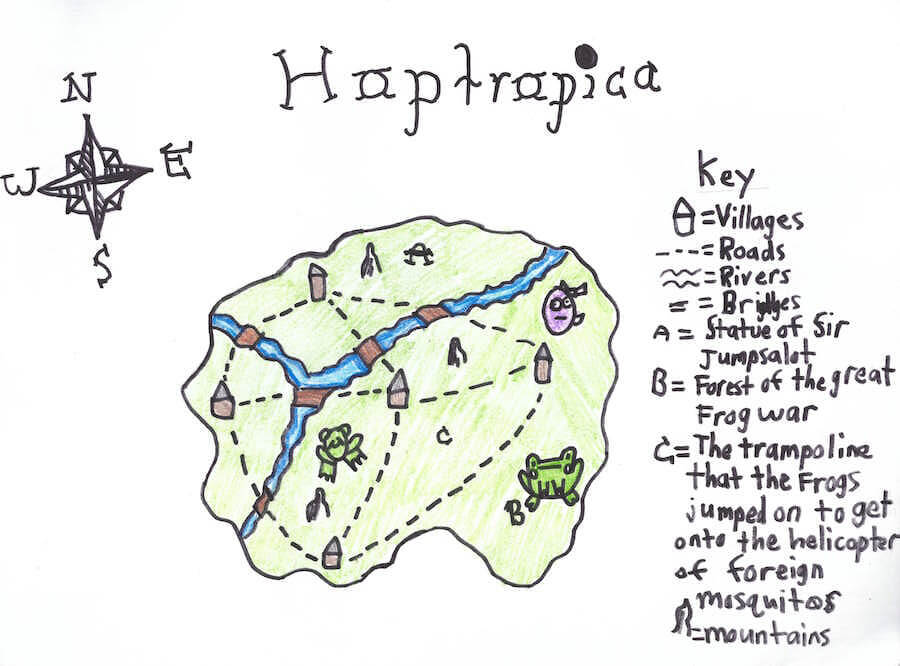 Hoptropica
N
W
E
S
A
C
B
Key
=Villages
=Roads
=Rivers
= Bridges
A = Statue of Sir
Jumpsalot
B = Forest of the great
Frog war
C = The trampoline
that the Frogs
jumped on to get
onto the helicopter
of foreign
mosquitos
=mountains